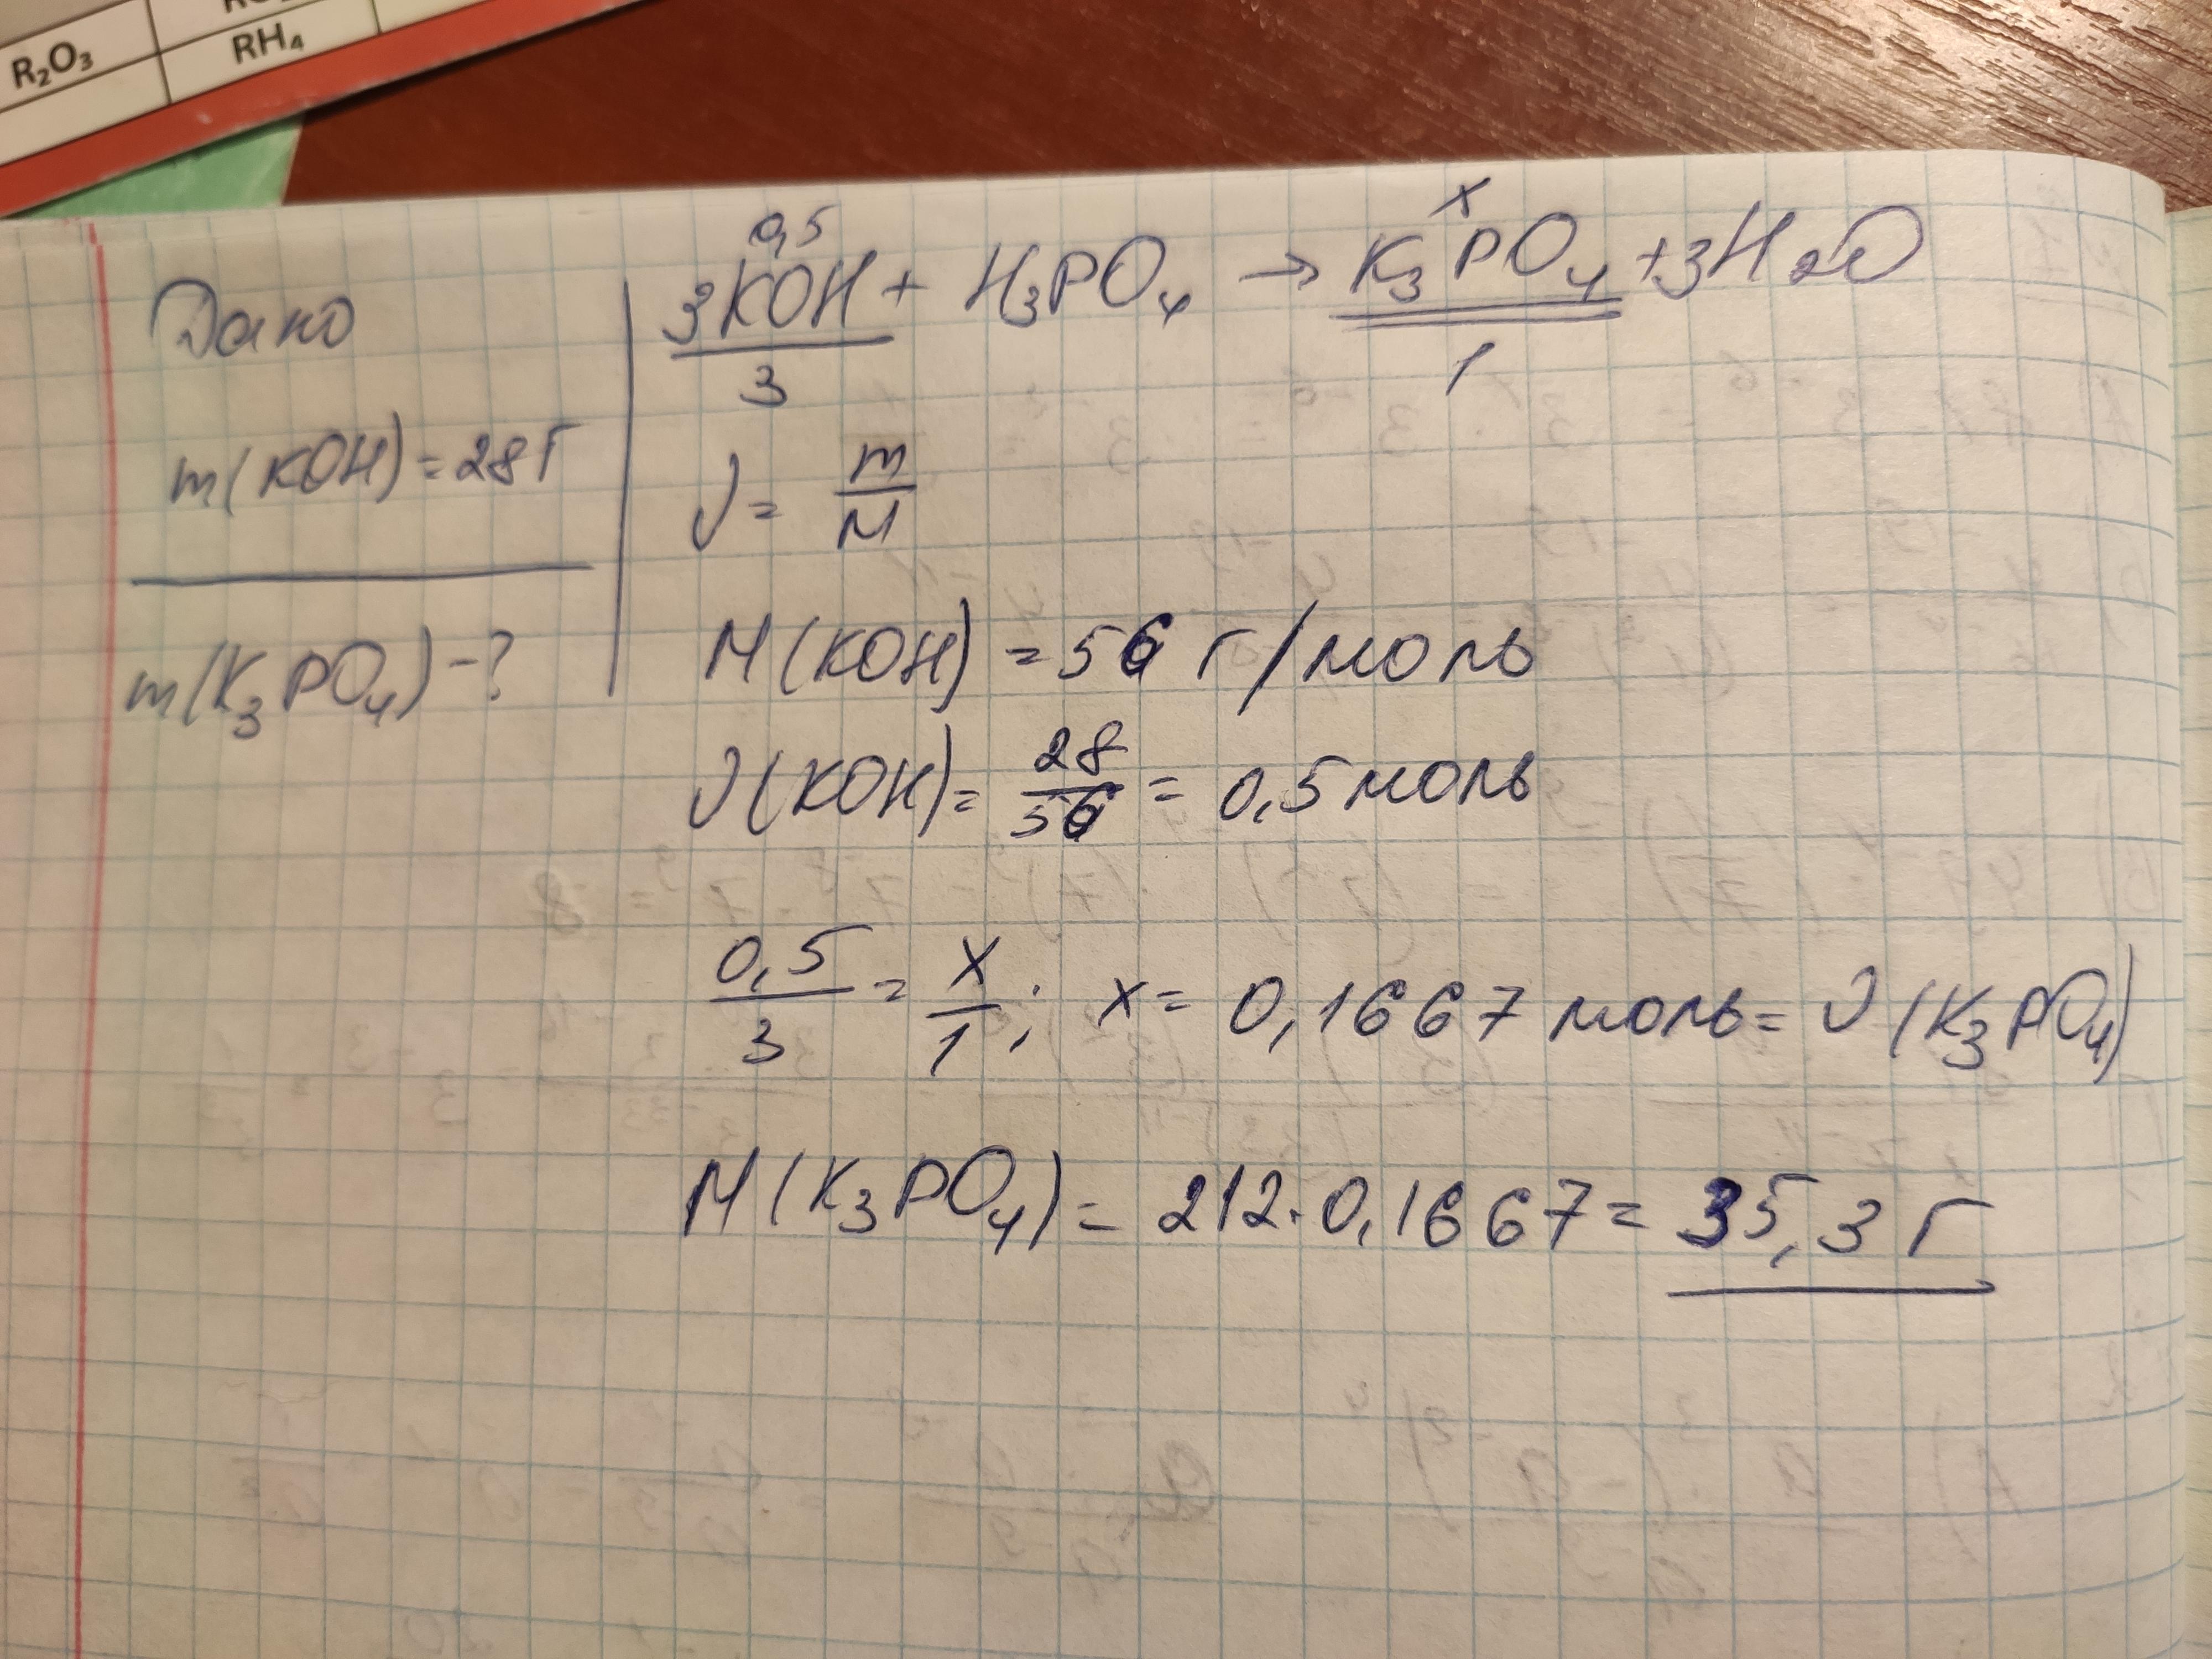 R₂O₃
RH₄
Дано
m(KOH)=28г
m(K₃PO₄)-?
0,5 x
3KOH + H₃PO₄ → K₃PO₄ + 3H₂O
3 1
ν = m/M
M(KOH) = 56 г/моль
ν(KOH) = 28/56 = 0,5 моль
0,5/3 = x/1; x = 0,1667 моль = ν(K₃PO₄)
M(K₃PO₄) = 212·0,1667 = 35,3 г